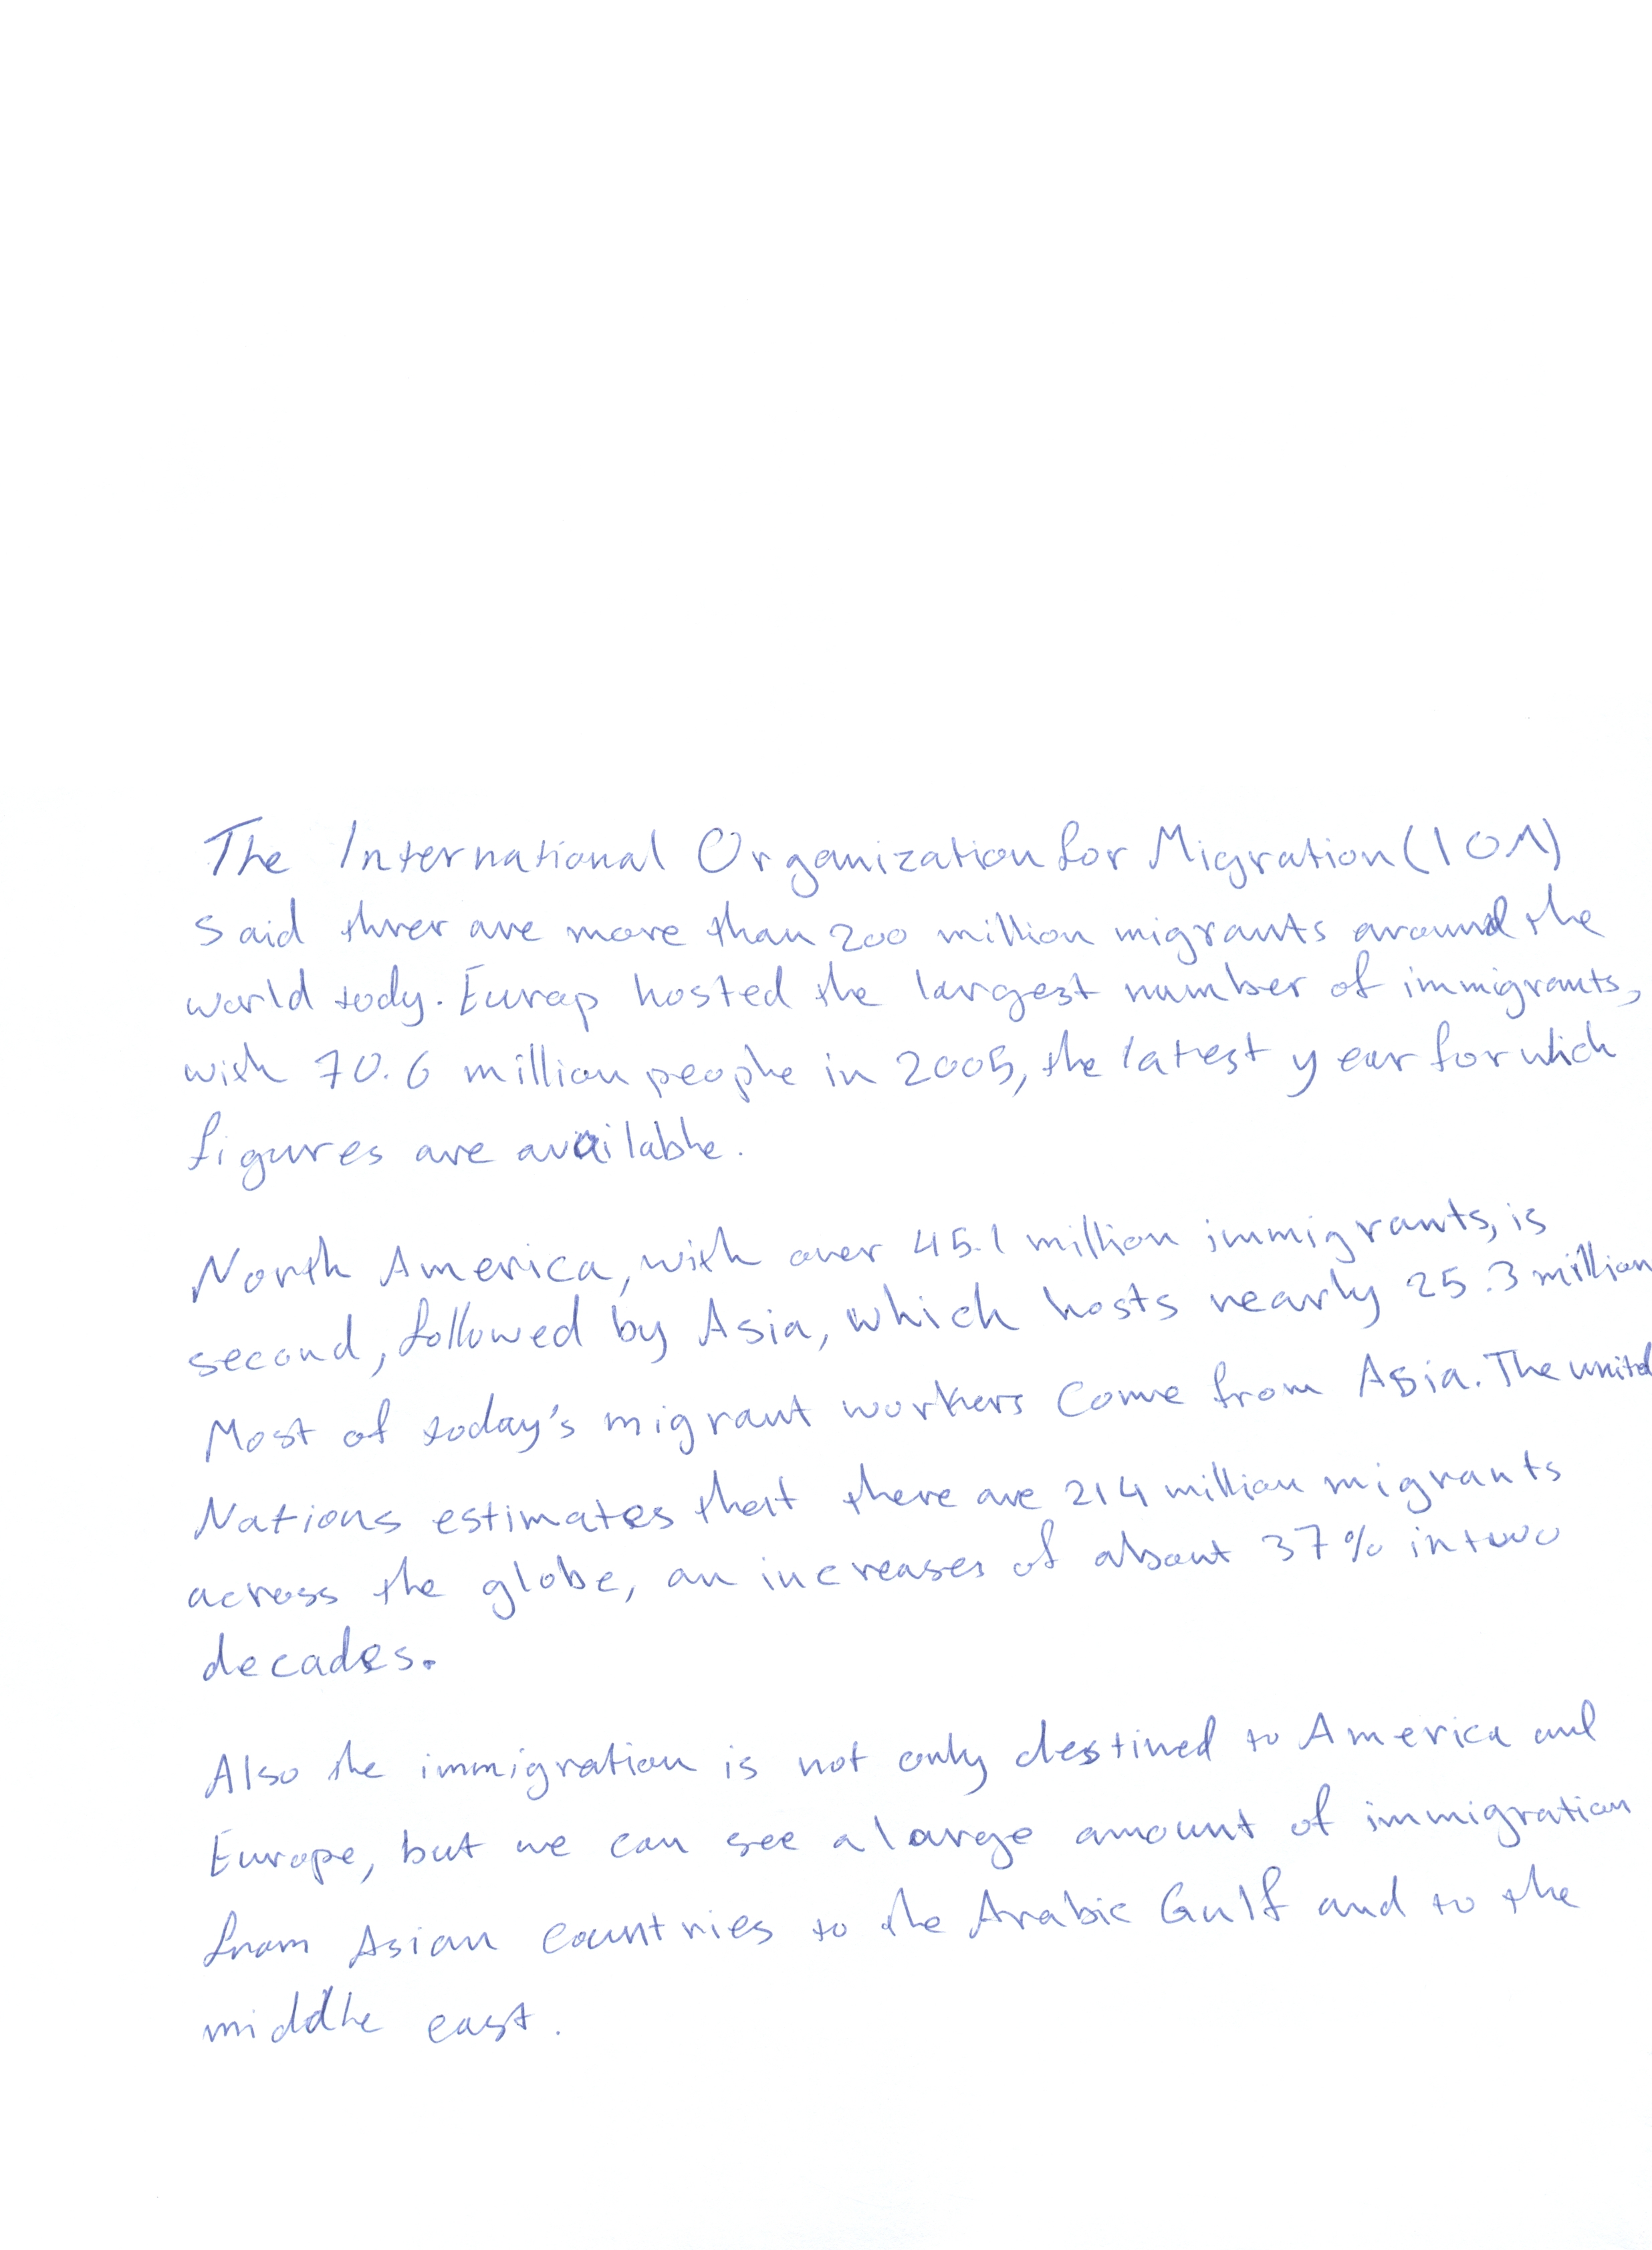 The International Organization for Migration (IOM)
said threr are more than 200 million migrants around the
world tody. Europ hosted the largest number of immigrants,
with 70.6 million people in 2005, the latest year for which
figures are available.
North America, with over 45.1 million immigrants, is
second, followed by Asia, which hosts nearly 25.3 million
Most of today's migrant workers come from Asia. The united
Nations estimates that there are 214 million migrants
across the globe, an increases of about 37% in two
decades.
Also the immigration is not only destined to America and
Europe, but we can see a large amount of immigration
from Asian countries to the Arabic Gulf and to the
middle east.